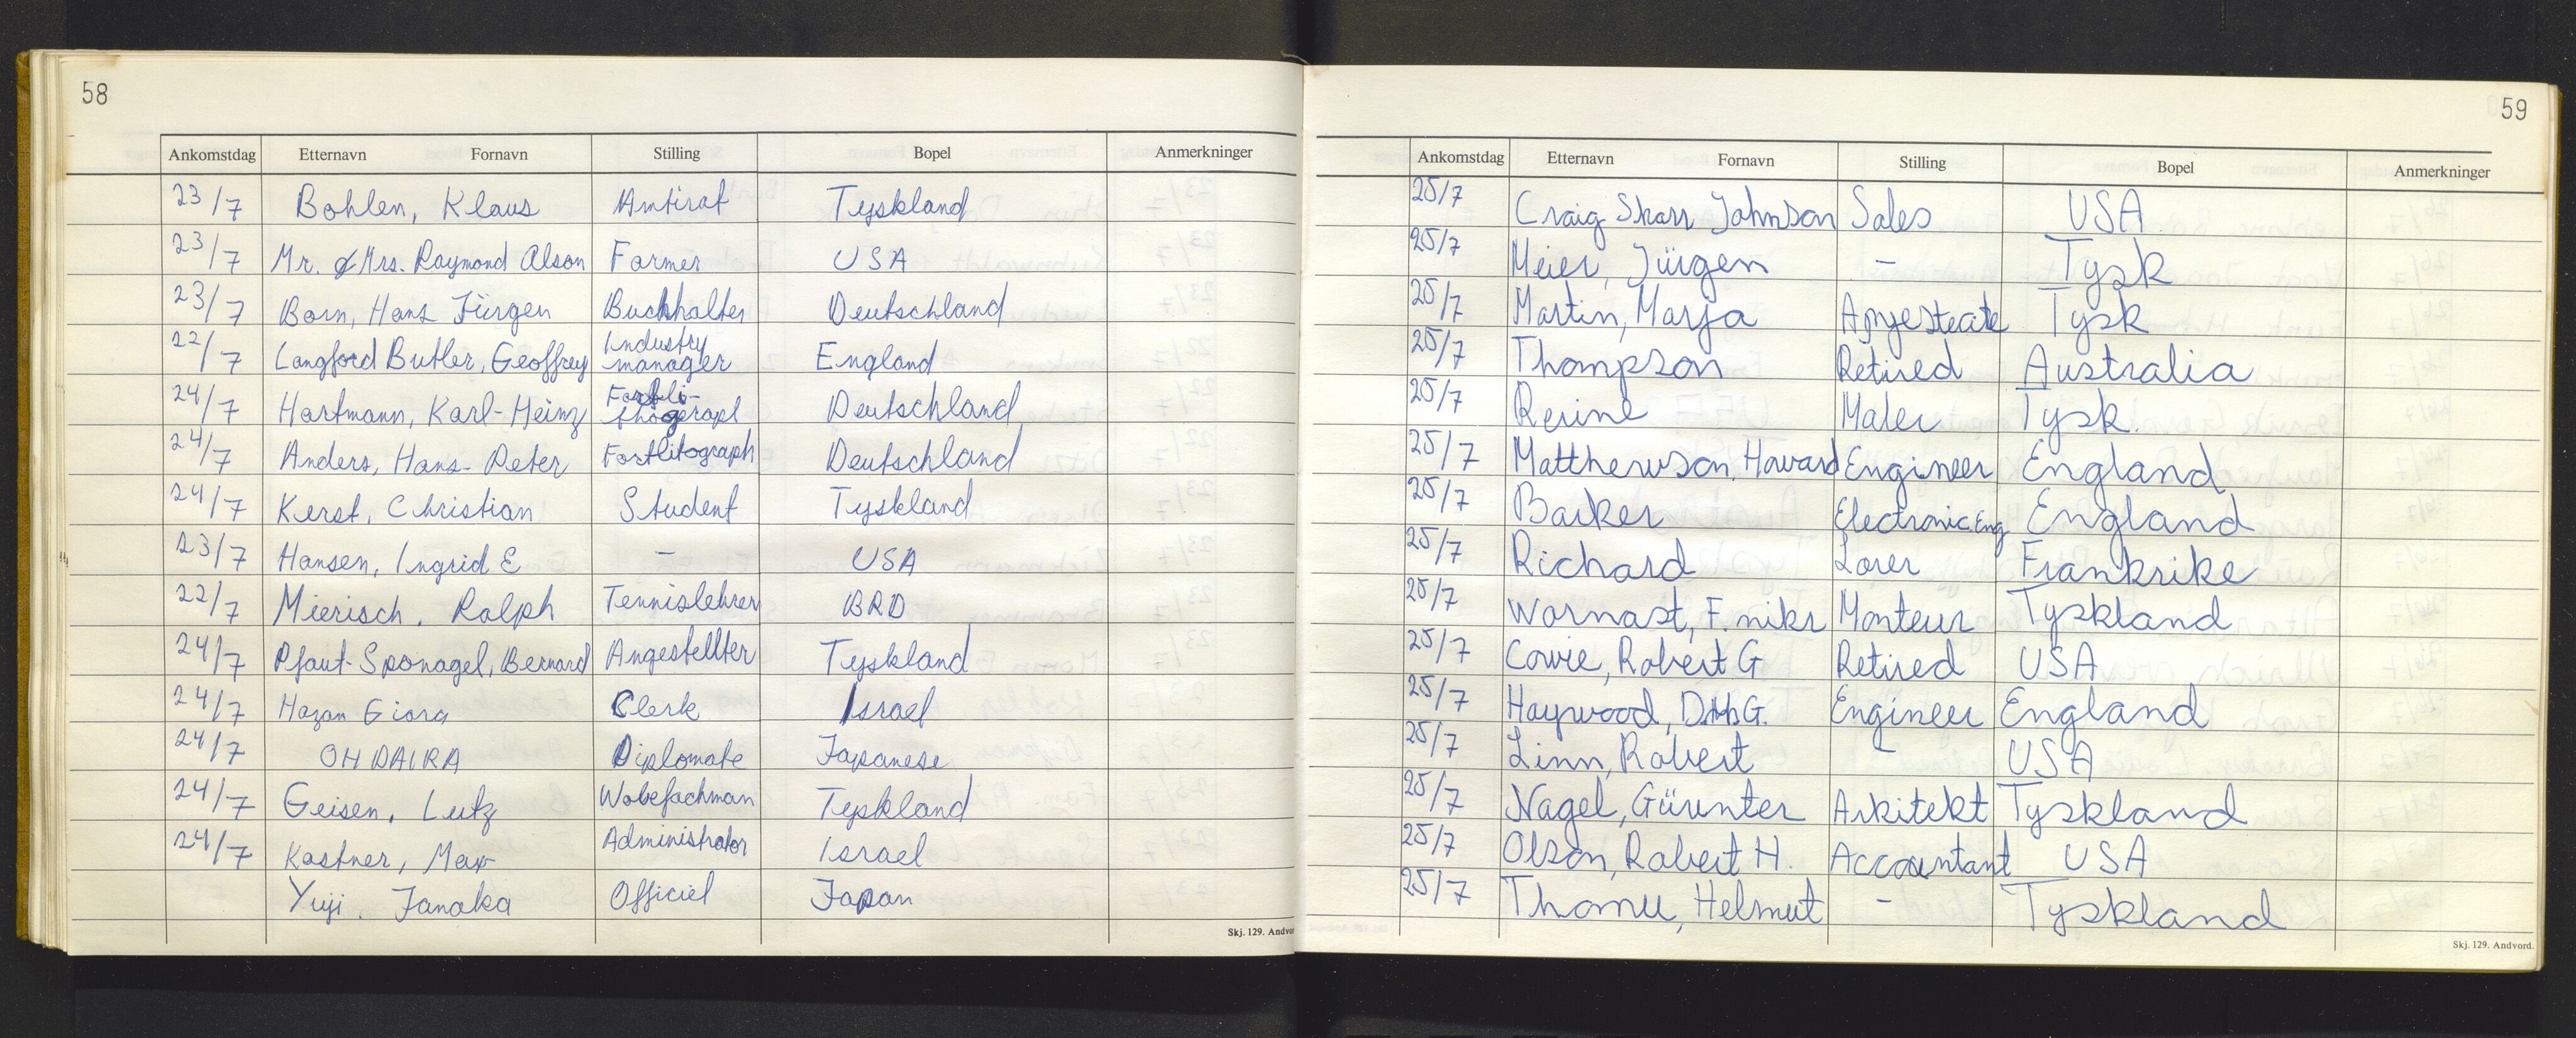 58
Ankomstdag Etternavn Fornavn Stilling Bopel Anmerkninger
23/7 Bohlen, Klaus Amtirat Tyskland
23/7 Mr. & Mrs. Raymond Olson Farmer USA
23/7 Born, Hans Jürgen Buchhalter Deutschland
22/7 Langford Butler, Geoffrey Industry manager England
24/7 Hartmann, Karl-Heinz Deutschland
24/7 Anders, Hans-Peter Fartlitograph Deutschland
24/7 Kerst, Christian Student Tyskland
23/7 Hansen, Ingrid E - USA
22/7 Mierisch, Ralph Tennislehrer BRD
24/7 Pfaut-Sponagel, Bernard Angestellter Tyskland
24/7 Hazan Giora Clerk Israel
24/7 OHDAIRA Diplomate Japanese
24/7 Geisen, Lutz Wobefachman Tyskland
24/7 Kastner, Max Administrator Israel
Yuji. Tanaka Officiel Japan
Skj. 129. Andvor
59
Ankomstdag Etternavn Fornavn Stilling Bopel Anmerkninger
25/7 Craig Skarr Johnson Sales USA
25/7 Meier, Jürgen - Tysk
25/7 Martin, Marja Tysk
25/7 Thompson Retired Australia
25/7 Reine Maler Tysk.
25/7 Matthewson, Howard Engineer England
25/7 Barker Electronic.Eng England
25/7 Richard Lærer Frankrike
25/7 Wornast, F. Monteur Tyskland
25/7 Cowie, Robert G Retired USA
25/7 Haywood, Engineer England
25/7 Linn, Robert - USA
25/7 Nagel, Günter Arkitekt Tyskland
25/7 Olson, Robert H. Accountant USA
25/7 Helmut - Tyskland
Skj. 129. Andvord.